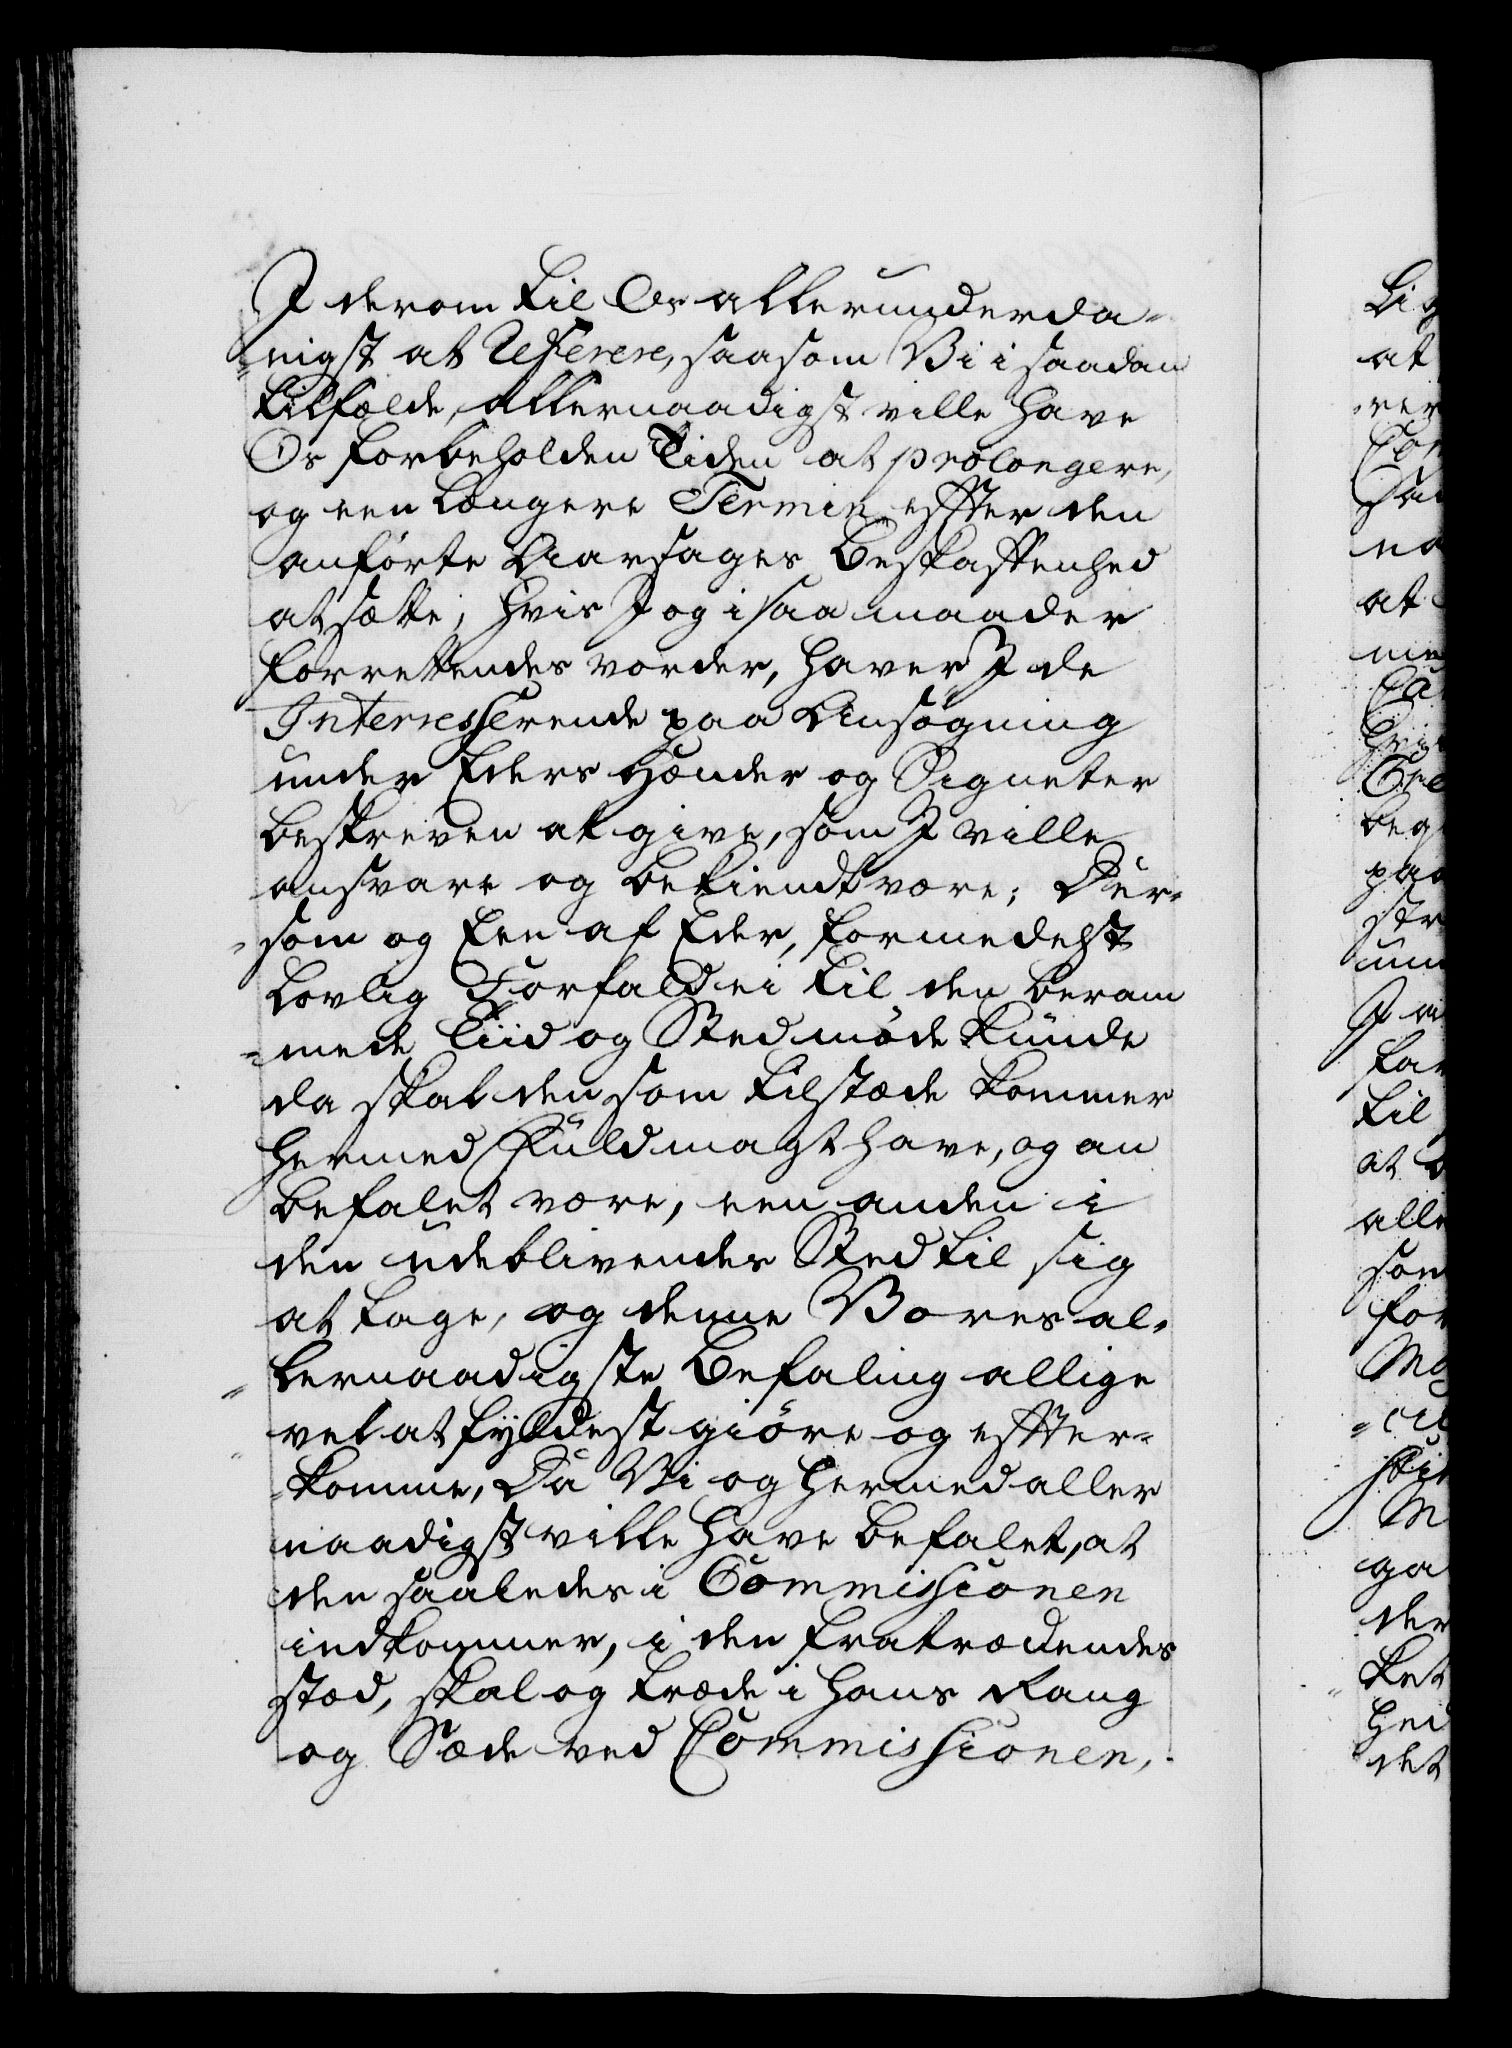 I derom til Os allerunderda-
nigst at Referere, saasom Vi i saadan
tilfælde, allernaadigst ville have
Os forbeholden Tiden at prolongere,
og een længere Termin effter den
anførte Aarsages Beskaffenhed
at sætte; Hvis I og i saa maader
forrettendes vorder, haver I de
Interresserende paa Ansøgning
under Eders Hænder og Signeter
beskreven at give, som I ville
ansvare og bekiendt være; Der-
som og Een af Eder, formedelst
Lovlig Forfald ei til den beram
mede Tiid og Sted møde kunde
da skal den som tilstæde kommer
hermed Fuldmagt have, og an
befalet være, een anden i
den udeblivendes Sted til sig
at tage, og denne Vores al-
lernaadigste Befaling allige
vel at fyldest giøre og effter-
komme, Da Vi og hermed aller
naadigst ville have befalet, at
den saaledes i Commissionen
indkommer, i den fratrædendes
stæd, skal og træde i hans Rang
og Sæde ved Commissionen,
Lig
at
ver
Com
saa
na
at
me
Ca
Cre
beg
paa
str
I a
til
at b
alle
som
for
M
ga
der
ket
hed
det